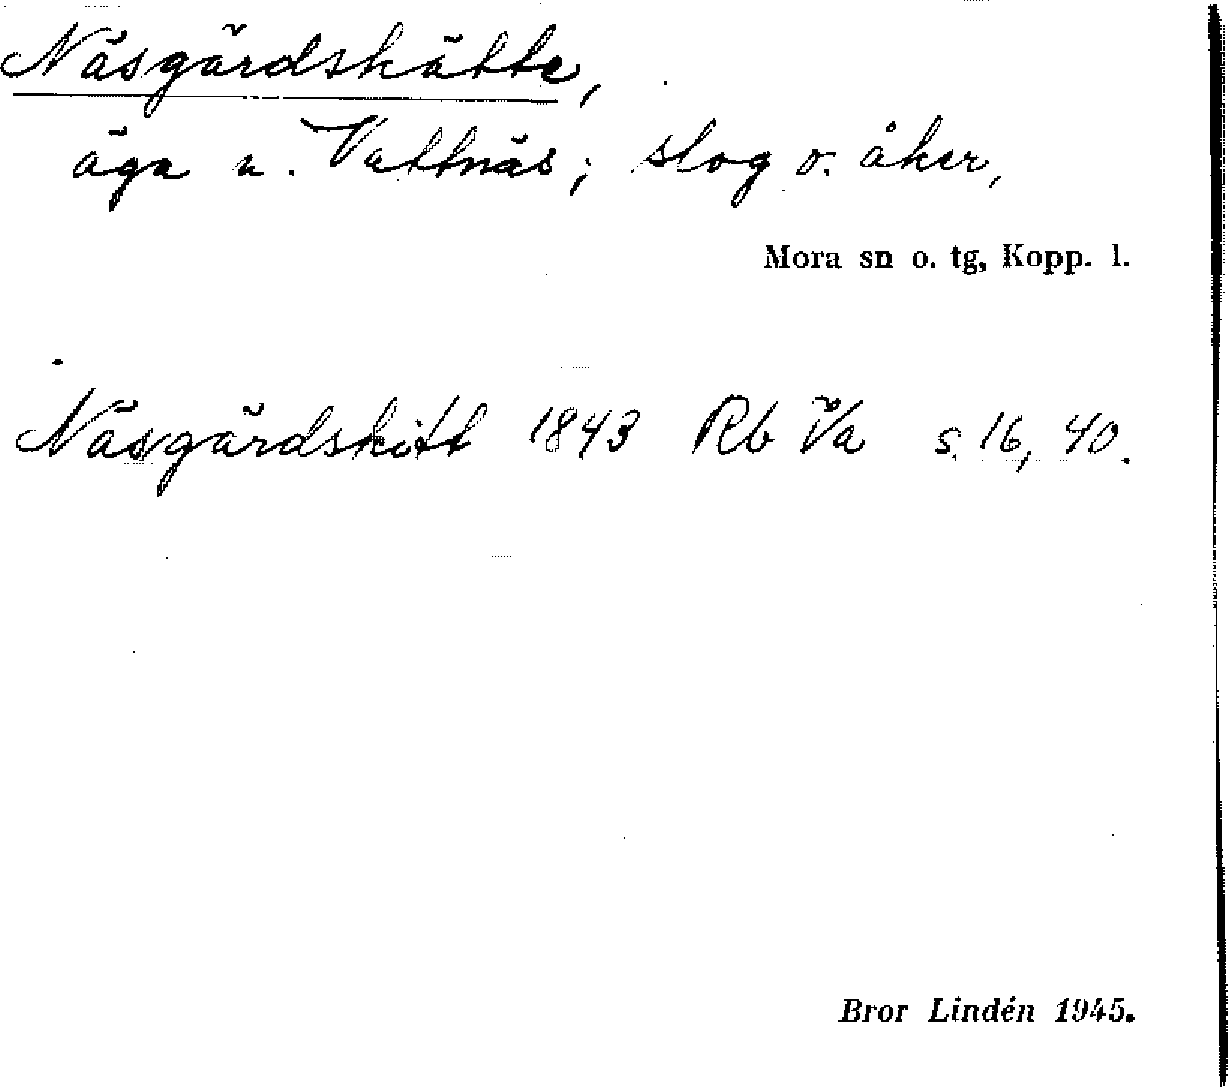 Näsgärdskätte,
äga u. Vattnäs; slog o. åker,
Mora sn o. tg, Kopp. l.
Näsgärdskitt 1843 Rb Va s. 16, 40.
Bror Lindén 1945.